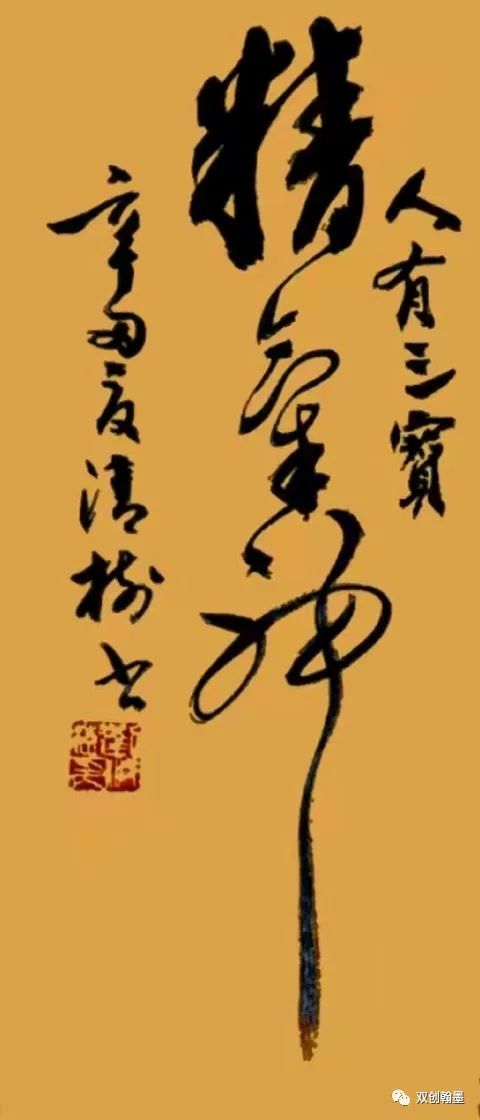 人有三寶
精氣神
辛丑夏清樹书
双创翰墨